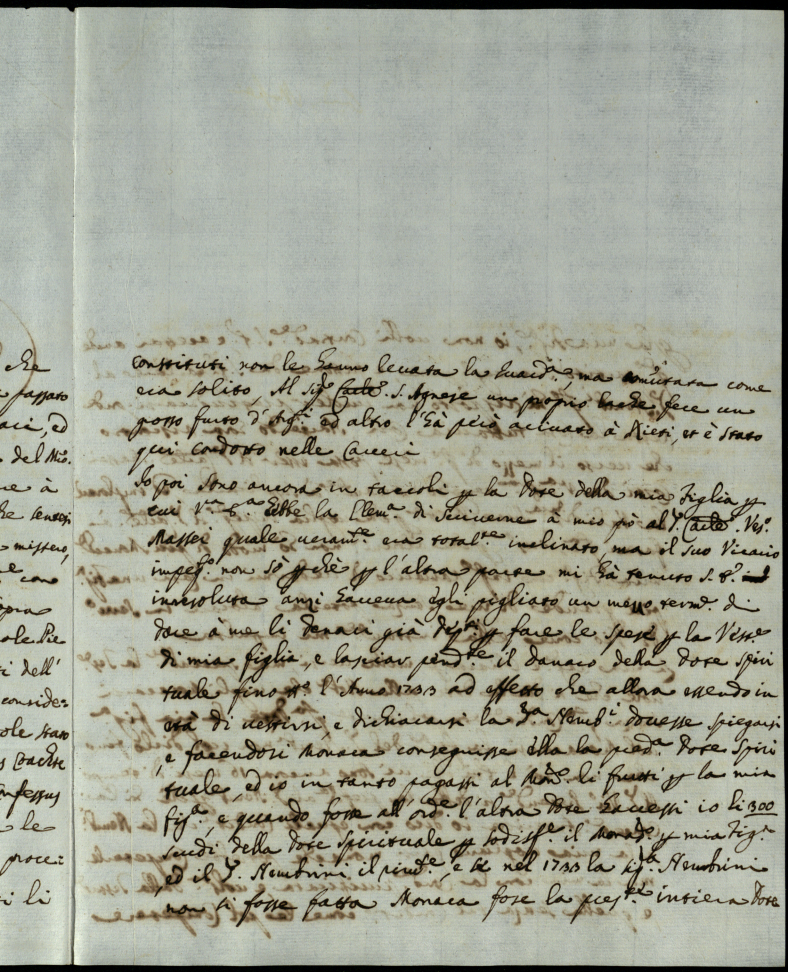 che
passato
ed
del Mro.
ne à
che sentesi
mistero,
con
opra
ole Pie
ti dell'
conside=
ole stato
confessus
le
proce=
ti li
constituti non le hanno levata la Guard.a, ma comutata come
era solito, Al Sig.r Card.le S. Agnese un proprio fece un
posto furto d' Arg.ti ed altro l'hà però arivato à Rieti, et è stato
qui condotto nelle Carceri
Io poi sono ancora in taccoli p la Dote della mia figlia p
cui V.ra ebbe la Clem.a di scriverne à mio pò al S.r Card.le Ves.o
Massei quale veram.te era total.te inclinato, ma il suo Vicario
non sò pchè p l'altra parte mi hà tenuto S. E.
inresoluta anzi haveva egli pigliato un mezzo term.e di
dare à me li denari già p fare le spese p la Vest.e
di mia figlia, e lasciar pend.te il danaro della Dote Spiri
tuale fino l'Anno 1733 ad effetto che allora essendo in
età di vestirsi, e dichiararsi la Nembi dovesse spiegarsi
, e facendosi Monaca conseguisse ella la pred.a Dote Spiri
tuale, ed io in tanto pagassi al Mon.o li frutti p la mia
fig.a, e quando fosse all'ord.e l'altra Dote havessi io li 300
scudi della Dote Spirituale p sodisf.e il Monas.o p mia Fig.a
, ed il S.r Nembrini il pred.e, e se nel 1733 la Sig.ra Nembrini
non si fosse fatta Monaca fosse la intiera Dote